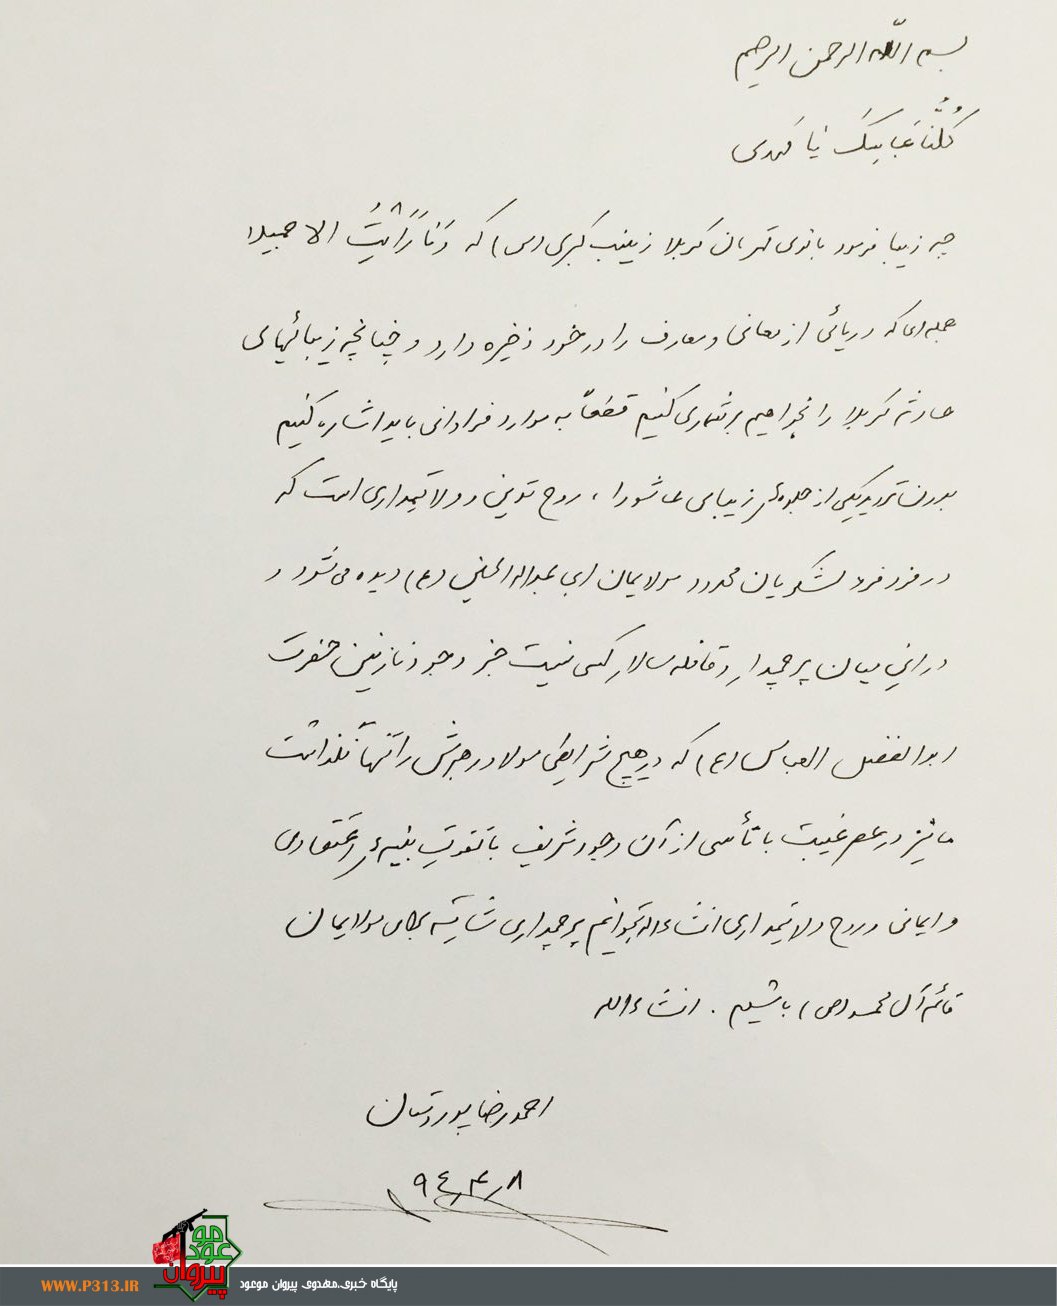 بسم الله الرحمن الرحیم
کُلُّنا عَباسُکَ یا مَهدی
چه زیبا فرمود بانوی قهرمان کربلا زینب کبری (س) که وَ ما رَاَیْتُ الا جمیلا
جمله‌ای که دریائی از معانی و معارف را در خود ذخیره دارد و چنانچه زیبائیهای
حادثه کربلا را بخواهیم برشماری کنیم قطعاً به موارد فراوانی باید اشاره کنیم
بدون تردید یکی از جلوه‌های زیبای عاشورا ، روح تدین و ولایتمداری است که
در فرد فرد لشکریان محدود مولایمان ابی عبداله الحسین (ع) دیده می‌شود و
در این میان پرچمدار و قافله سالار کسی نیست جز وجود نازنین حضرت
ابوالفضل العباس (ع) که در هیچ شرایطی مولا و رهبرش را تنها نگذاشت
ما نیز در عصر غیبت با تأسی از آن وجود شریف با تقویت بنیه‌های اعتقادی
و ایمانی و روح ولایتمداری انشاءاله بتوانیم پرچمداری شایسته برای مولایمان
قائم آل محمد (ص) باشیم . انشاءالله
احمدرضا پوردستان
۹۴٫۴٫۸
موعود
پیروان
WWW.P313.IR
پایگاه خبری،مهدوی پیروان موعود